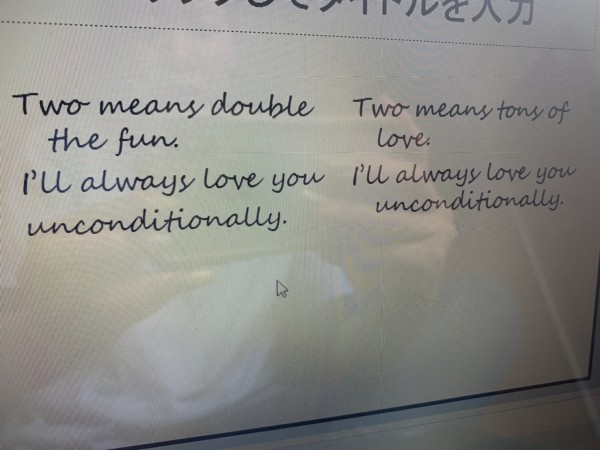 してタイトルを入力
Two means double
the fun.
I'll always love you
unconditionally.
Two means tons of
love.
I'll always love you
unconditionally.